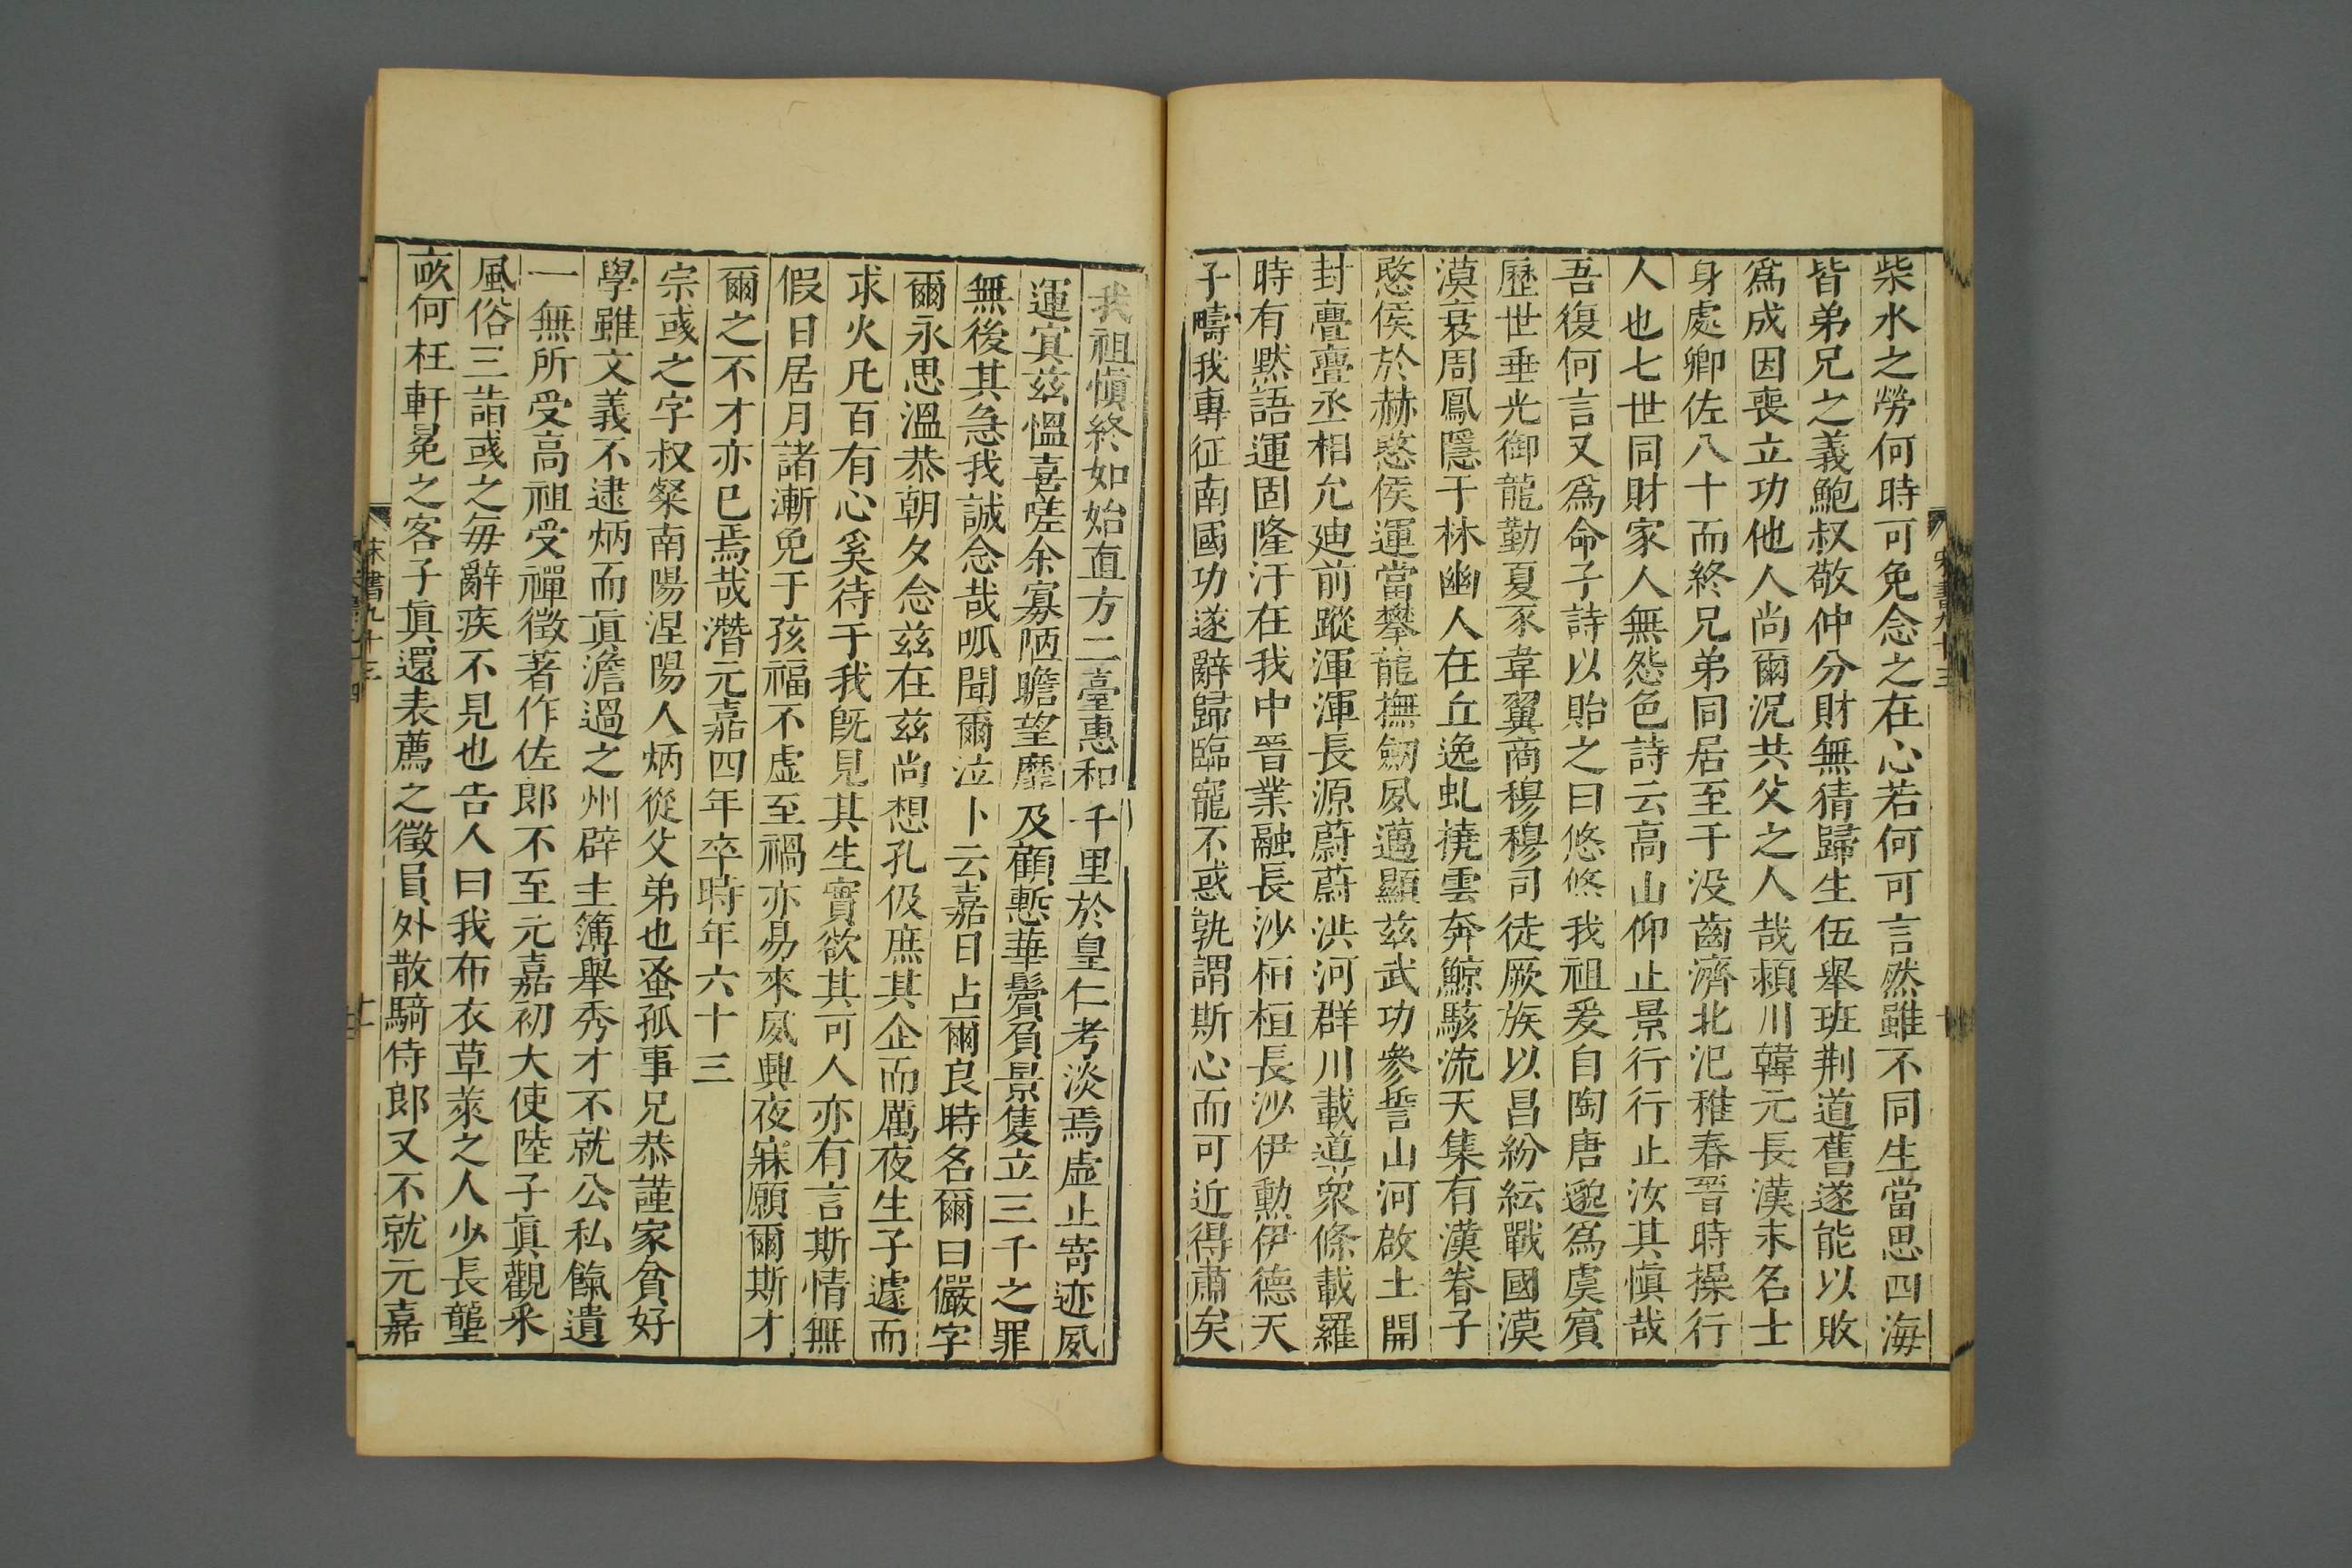 柴水之勞何時可免念之在心若何可言然雖不同生當思四海
皆弟兄之義鮑叔敬仲分財無猜歸生伍舉班荆道舊遂能以敗
爲成因喪立功他人尚爾況共父之人哉潁川韓元長漢末名士
身處卿佐八十而終兄弟同居至于没齒濟北氾稚春晉時操行
人也七世同財家人無怨色詩云高山仰止景行行止汝其愼哉
吾復何言又爲命子詩以貽之曰悠悠我祖爰自陶唐邈爲虞賓
歷世垂光御龍勤夏豕韋翼商穆穆司徒厥族以昌紛紜戰國漠
漠衰周鳳隱于林幽人在丘逸虬撓雲奔鯨駭流天集有漢眷子
愍侯於赫愍侯運當攀龍撫劒夙邁顯兹武功參誓山河啟土開
封亹亹丞相允廸前蹤渾渾長源蔚蔚洪河群川載導衆條載羅
時有黙語運固隆汙在我中晉業融長沙栢桓長沙伊勲伊德天
子疇我專征南國功遂辭歸臨寵不惑孰謂斯心而可近得肅矣
我祖愼終如始直方二臺惠和千里於皇仁考淡焉虛止寄迹夙
運寘兹慍喜嗟余寡陋瞻望靡及顧慙華鬢負景隻立三千之罪
無後其急我誠念哉呱聞爾泣卜云嘉日占爾良時名爾曰儼字
爾求思溫恭朝夕念兹在兹尚想孔伋庶其企而厲夜生子遽而
求火凡百有心奚待于我旣見其生實欲其可人亦有言斯情無
假日居月諸漸免于孩福不虛至禍亦易來夙興夜寐願爾斯才
爾之不才亦已焉哉潛元嘉四年卒時年六十三
宗彧之字叔粲南陽涅陽人炳從父弟也蚤孤事兄恭謹家貧好
學雖文義不逮炳而眞澹過之州辟主簿舉秀才不就公私餼遺
一無所受高祖受禪徵著作佐郎不至元嘉初大使陸子眞觀采
風俗三詣彧之每辭疾不見也告人曰我布衣草萊之人少長壟
畝何枉軒冕之客子眞還表薦之徵員外散騎侍郎又不就元嘉
宋書九十三